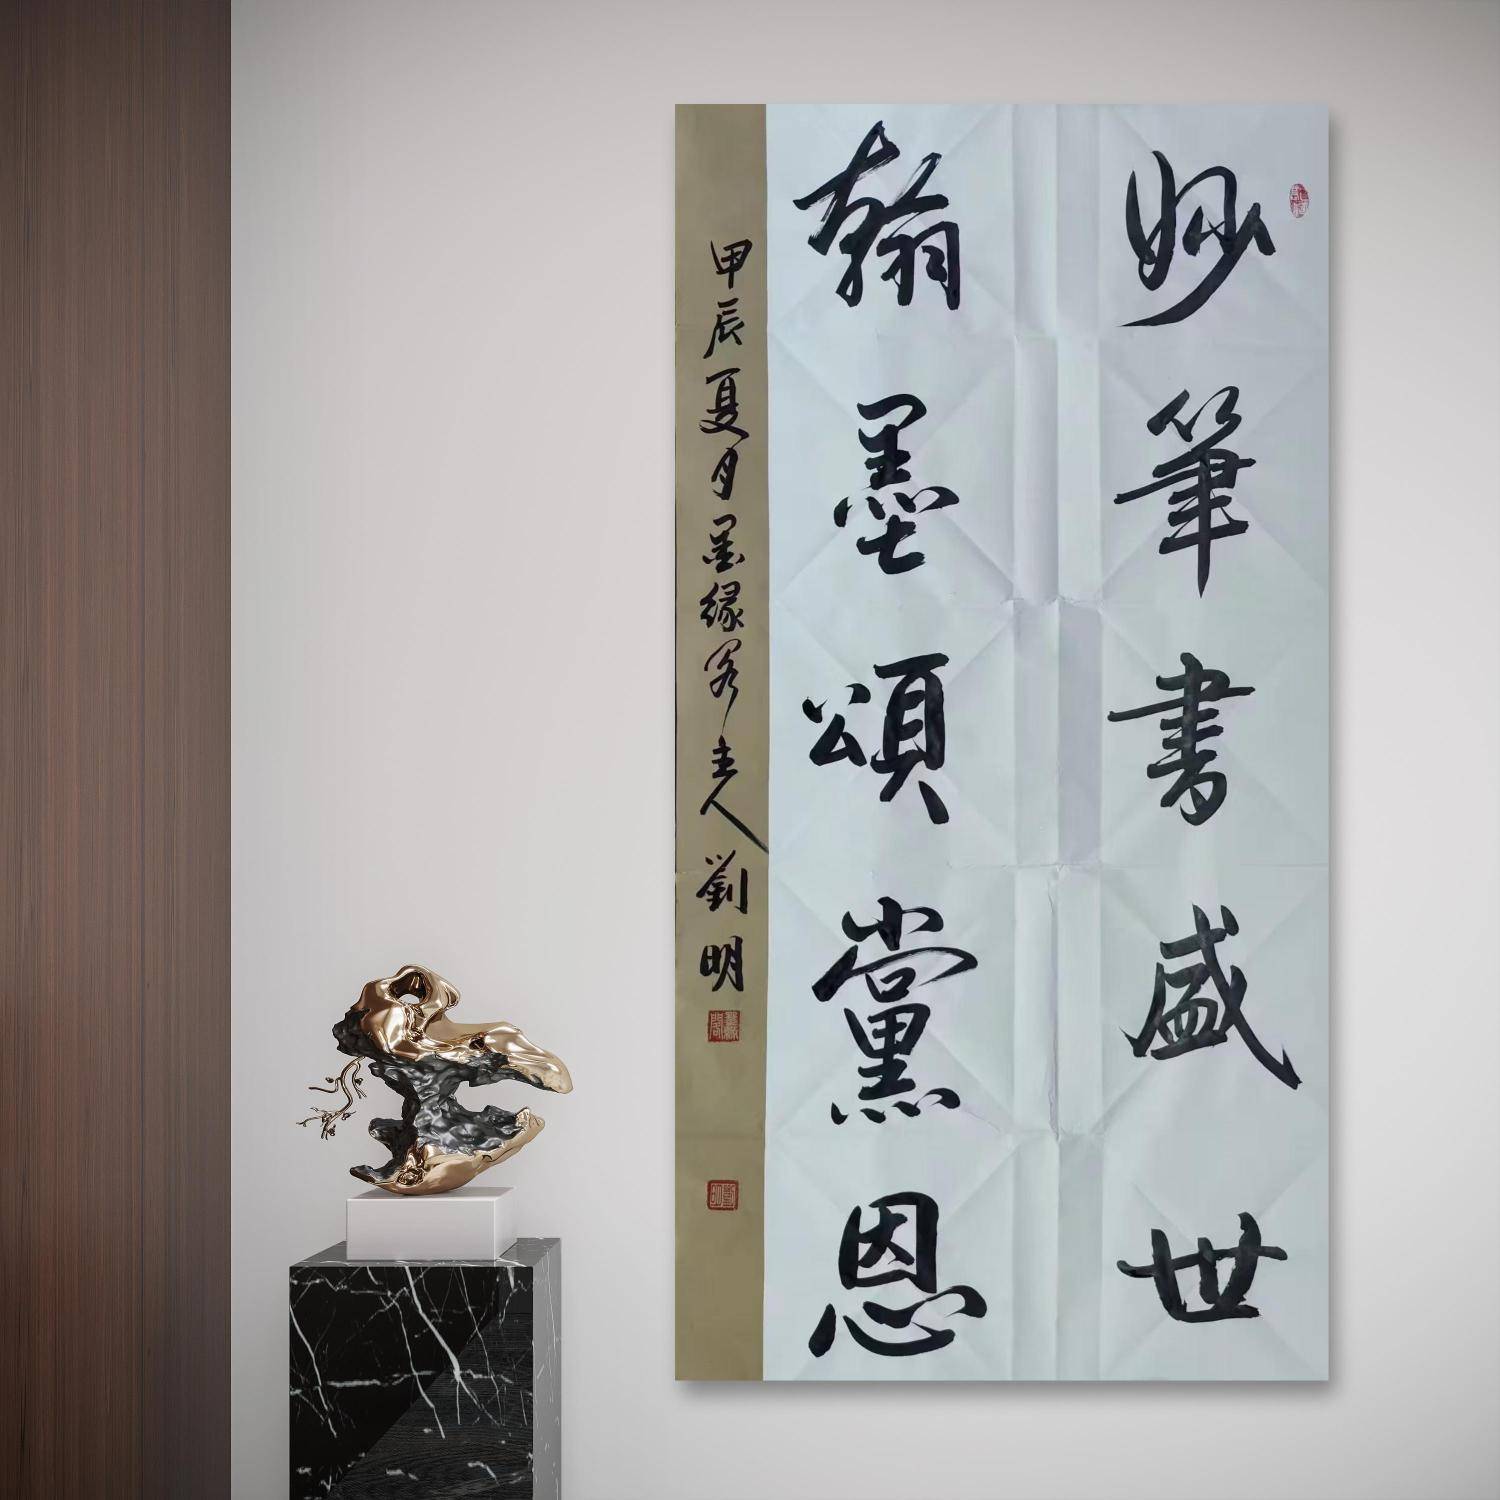 妙筆書盛世
翰墨頌黨恩
甲辰夏月墨缘阁主人劉明